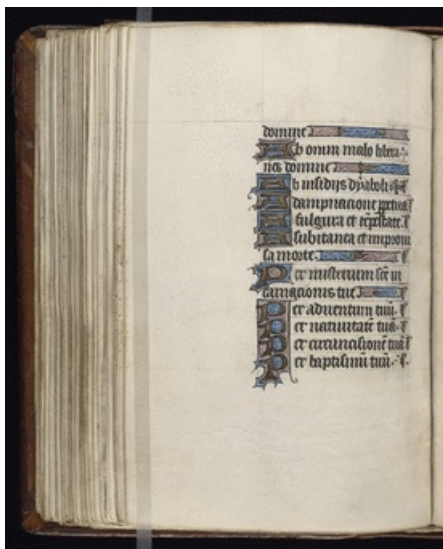 domine
Ab omni malo libera
nos domine
Ab insidijs dyaboli
A dampnacione ppetua
A fulgura et tēpestate.
A subitanea et improui
sa morte.
Per misterium scē in
carnacionis tue
Per aduentum tuū.
Per natiuitatē tuā.
Per circuncisionē tuā
Per baptismū tuū.